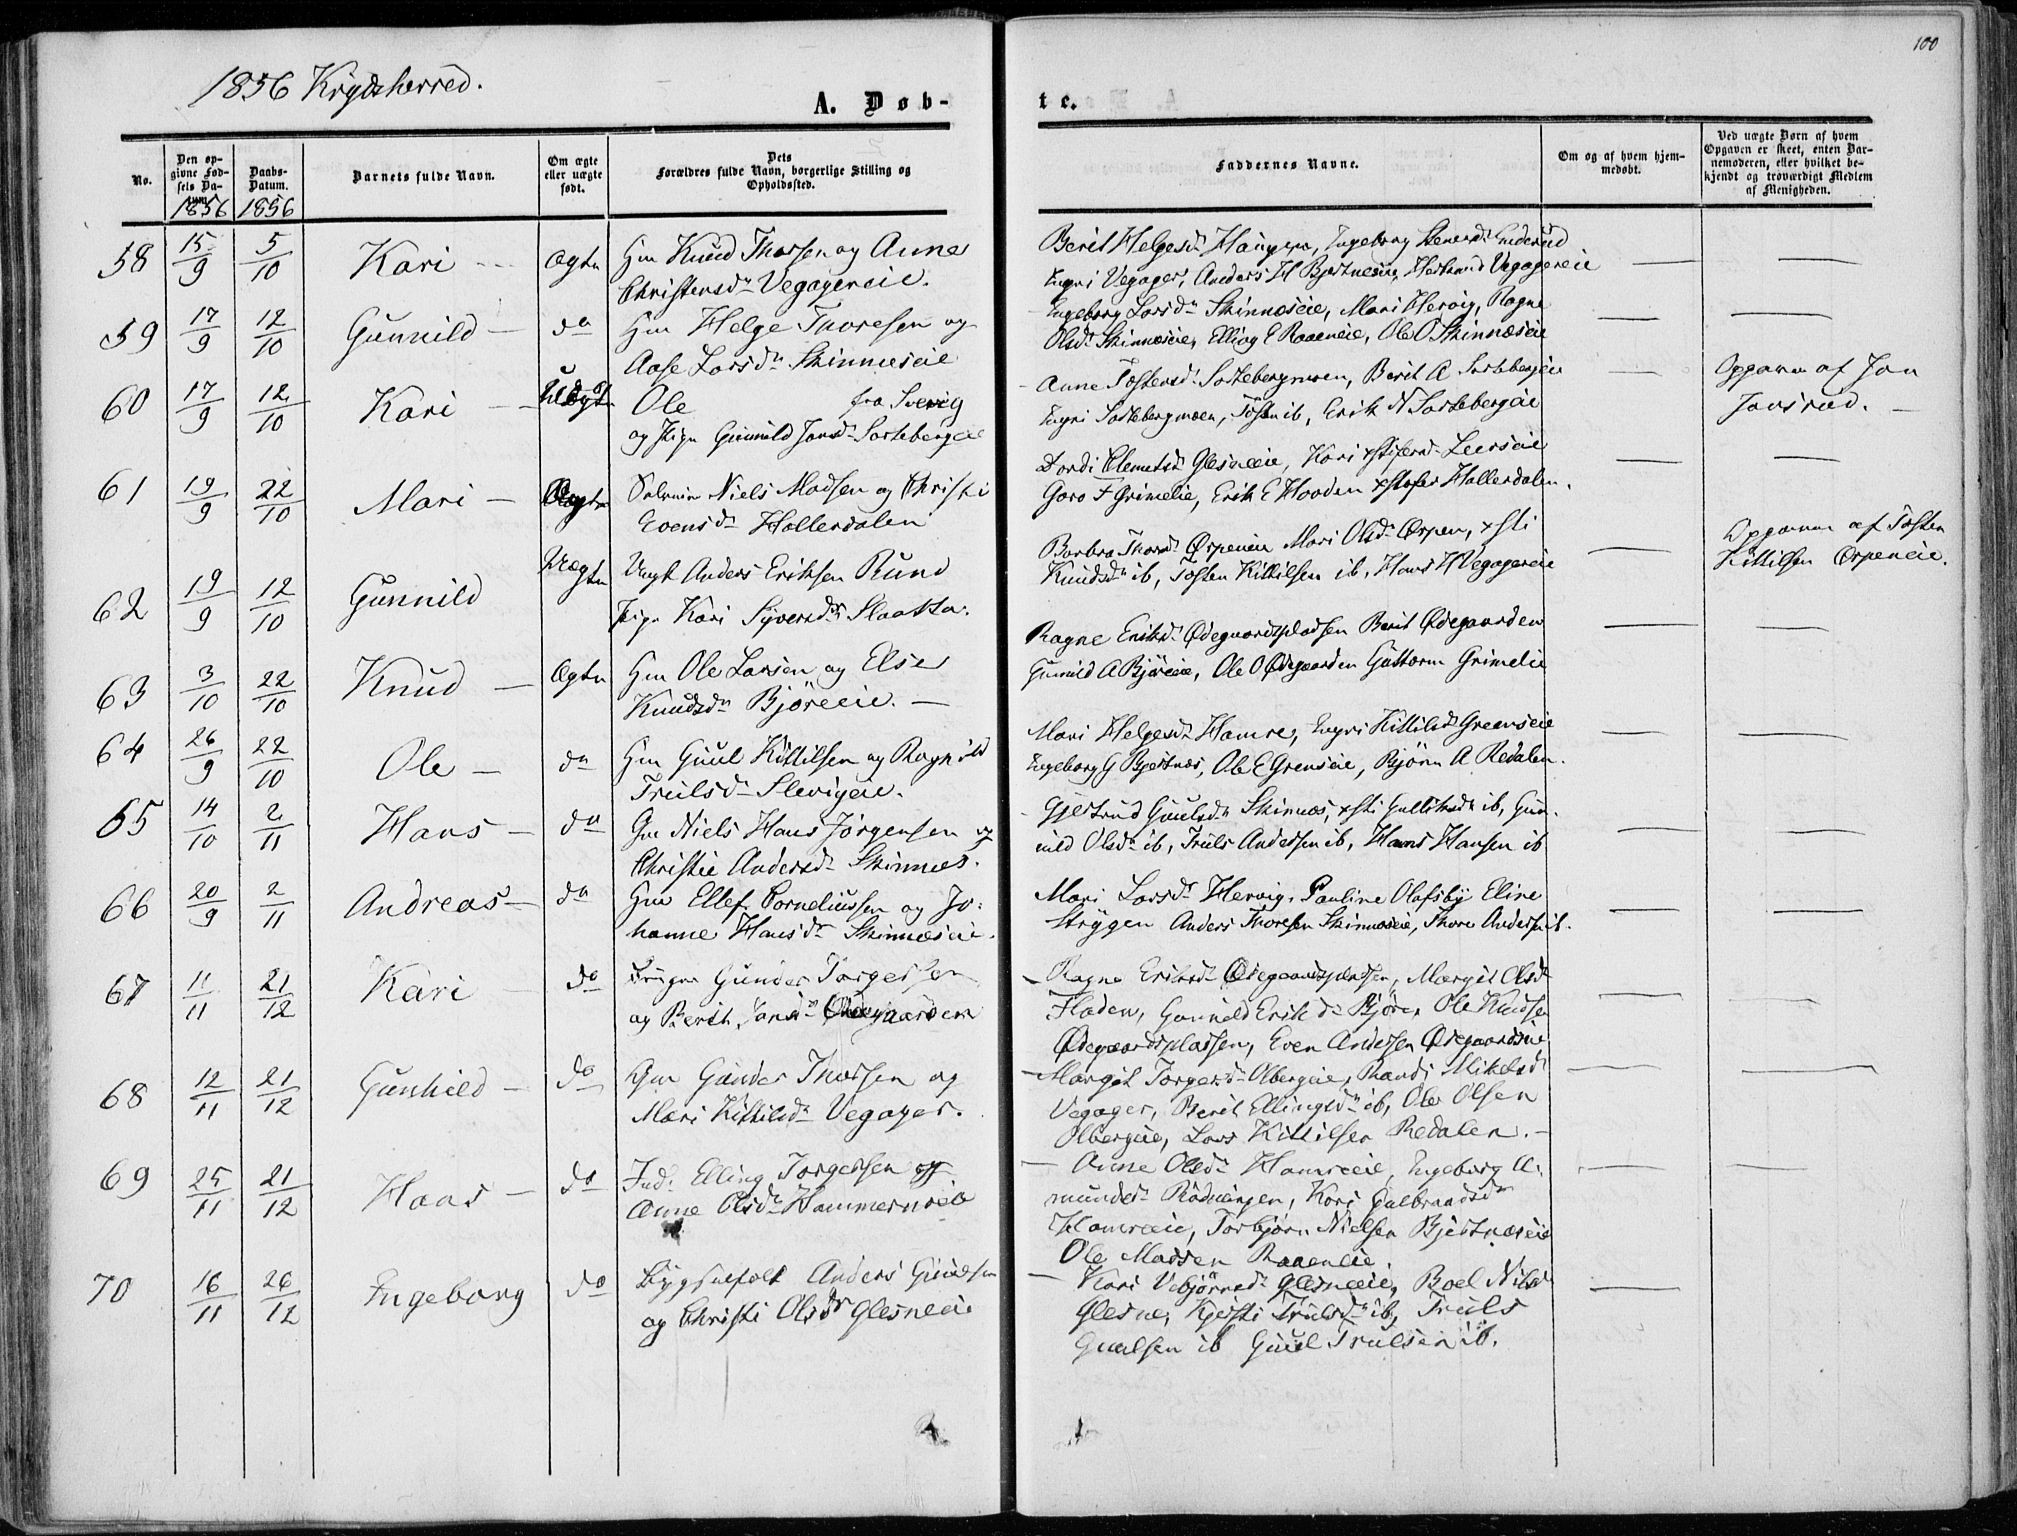 100
1856 Krydsherred.
A. Døb-
te.
No.
Den op-
givne Fød-
sels Da-
tum.
1856
Daabs-
Datum.
1856
Barnets fulde Navn.
Om ægte
eller uægte
født.
Dets
Forældres fulde Navn, borgerlige Stilling og
Opholdssted.
Faddernes Navne.
Om og af hvem hjem-
medøbt.
Ved uægte Børn af hvem
Opgaven er skeet, enten Bar-
nemoderen, eller hvilket be-
kjendt og troværdigt Medlem
af Menigheden.
58 15/9 5/10 Kari Ægte Hm Knud Thorsen og Anne
Christensdr Vegagereie.
Berit Helgesd. Ingeborg Enderud
Engri Vegager, Anders H Bjertneseie, Herbrand Vegagereie
59 17/9 12/10 Gunnild do Hm Helge Thoresen og
Aase Larsdr Skinneseie
Ingeborg Larsdr Skinneseie, Mari Hervig, Ragne
Olsd. Skinneseie, Elling E Raaeneie, Ole O Skinneseie
60 17/9 12/10 Kari Uægte Ole fra Svevig
og Pige Gunnild Jonsd. Sortebergeie
Anne Tostensd. Sortebergmoen, Berit A Sortebergeie
Engri Sortebergmoen, Tosten ib, Erik N Sortebergeie
Opgaven af Jon
Jonsrud.
61 19/9 22/10 Mari Ægte Niels Madsen og Christi
Evensdr Hollerdalen
Dordi Clemetsd. Glesneeie, Kari Leerseie
Goro F Grimelie, Erik E Hovden xstofer Hollerdalen.
62 19/9 12/10 Gunnild Uægte Ungk Anders Eriksen Rund
Pige Kari Syversdr Slaatto.
Barbra Thorsd. Ørpeneie Mari Olsd. Ørpen, xsti
Knudsdr ib, Tosten Kittilsen ib, Hans H Vegagereie
Opgaven af Tosten
Kittilsen Ørpeneie.
63 3/10 22/10 Knud Ægte Hm Ole Larsen og Else
Knudsdr Bjøreeie.
Ragne Eriksd. Ødegaardspladsen Berit Ødegaarden
Gunnild A Bjøreeie, Ole O Ødegaarden Guttorm Grimelie
64 26/9 22/10 Ole do Hm Guul Kittilsen og Ragnild
Trulsdr Slevigeie.
Mari Helgesd. Hamre, Engri Kittilsd. Greenseie
Ingeborg G Bjertnes, Ole E Grenseie, Bjørn A Redalen.
65 14/10 2/11 Hans do Gm Niels Hans Jørgensen og
Christie Andersd. Skinnes.
Gjertrud Guulsdr Skinnes, xsti Gulliksdr ib, Gun-
nild Olsdr ib, Truls Andersen ib, Hans Hansen ib
66 20/9 2/11 Andreas do Hm Ellef Corneliussen og Jo-
hanne Hansdr Skinneseie.
Mari Larsd. Hervig, Pauline Olafsby Eline
Strygen Anders Thoresen Skinneseie, Thore Andersen ib.
67 11/11 21/12 Kari do Gunder Torgersen
og Berith Jonsdr Ødegaarden
Ragne Eriksd. Ødegaardspladsen, Margit Olsd.
Floden, Gunnild Eriksdr Bjøre, Ole Knudsen
Ødegaardsplassen, Even Andersen Ødegaardseie
68 12/11 21/12 Gunhild do Gm Gunder Thorsen og
Mari Kittilsdr Vegager.
Margit Torgersd. Olbergeie, Randi Mikelsd.
Vegager, Berit Ellingsdr ib, Ole Olsen
Olbergeie, Lars Kittilsen Redalen.
69 25/11 21/12 Haas do Ind. Elling Torgersen og
Anne Olsdr Hammerneeie
Anne Olsd. Hamreeie, Engeborg A-
mundsd. Rødningen, Kari Gulbrandsdr
Hamreeie, Torbjørn Nielsen Bjertneseie
Ole Madsen Raaeneie.
70 16/11 26/12 Engeborg do Bygselfolk Anders Guulsen
og Christi Olsdr Glesneeie
Kari Vebjørnsd. Glesneeie, Boel Nilsd.
Glesne, Kjersti Trulsdr ib, Truls
Guulsen ib Guul Trulsen ib.